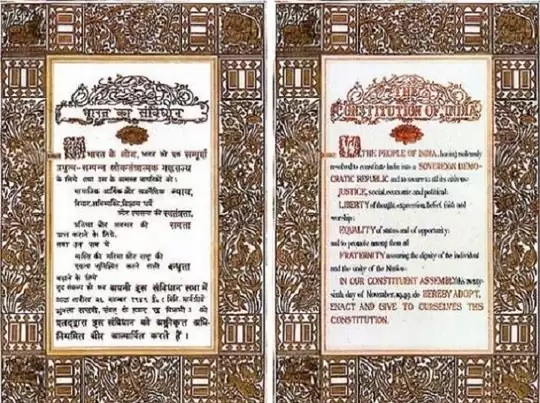 भारत का संविधान
हम भारत के लोग, भारत को एक सम्पूर्ण
प्रभुत्व-सम्पन्न लोकतंत्रात्मक गणराज्य
के लिये तथा उस के समस्त नागरिकों को:
सामाजिक, आर्थिक और राजनैतिक न्याय,
विचार, अभिव्यक्ति, विश्वास, धर्म
और उपासना की स्वतंत्रता,
प्रतिष्ठा और अवसर की समता
प्राप्त कराने के लिये,
तथा उन सब में
व्यक्ति की गरिमा और राष्ट्र की
एकता सुनिश्चित करने वाली बन्धुता
बढ़ाने के लिये
दृढ़ संकल्प हो कर अपनी इस संविधान सभा में
आज तारीख २६ नवम्बर १९४९ ई० (मिति मार्गशीर्ष
शुक्ला सप्तमी, संवत् दो हजार छः विक्रमी) को
एतद्द्वारा इस संविधान को अङ्गीकृत, अधि-
नियमित और आत्मार्पित करते हैं।
THE
CONSTITUTION OF INDIA
WE, THE PEOPLE OF INDIA, having solemnly
resolved to constitute India into a SOVEREIGN DEMO-
CRATIC REPUBLIC and to secure to all its citizens:
JUSTICE, social, economic and political;
LIBERTY of thought, expression, belief, faith and
worship;
EQUALITY of status and of opportunity;
and to promote among them all
FRATERNITY assuring the dignity of the individual
and the unity of the Nation;
IN OUR CONSTITUENT ASSEMBLY this twenty-
sixth day of November, 1949, do HEREBY ADOPT,
ENACT AND GIVE TO OURSELVES THIS
CONSTITUTION.